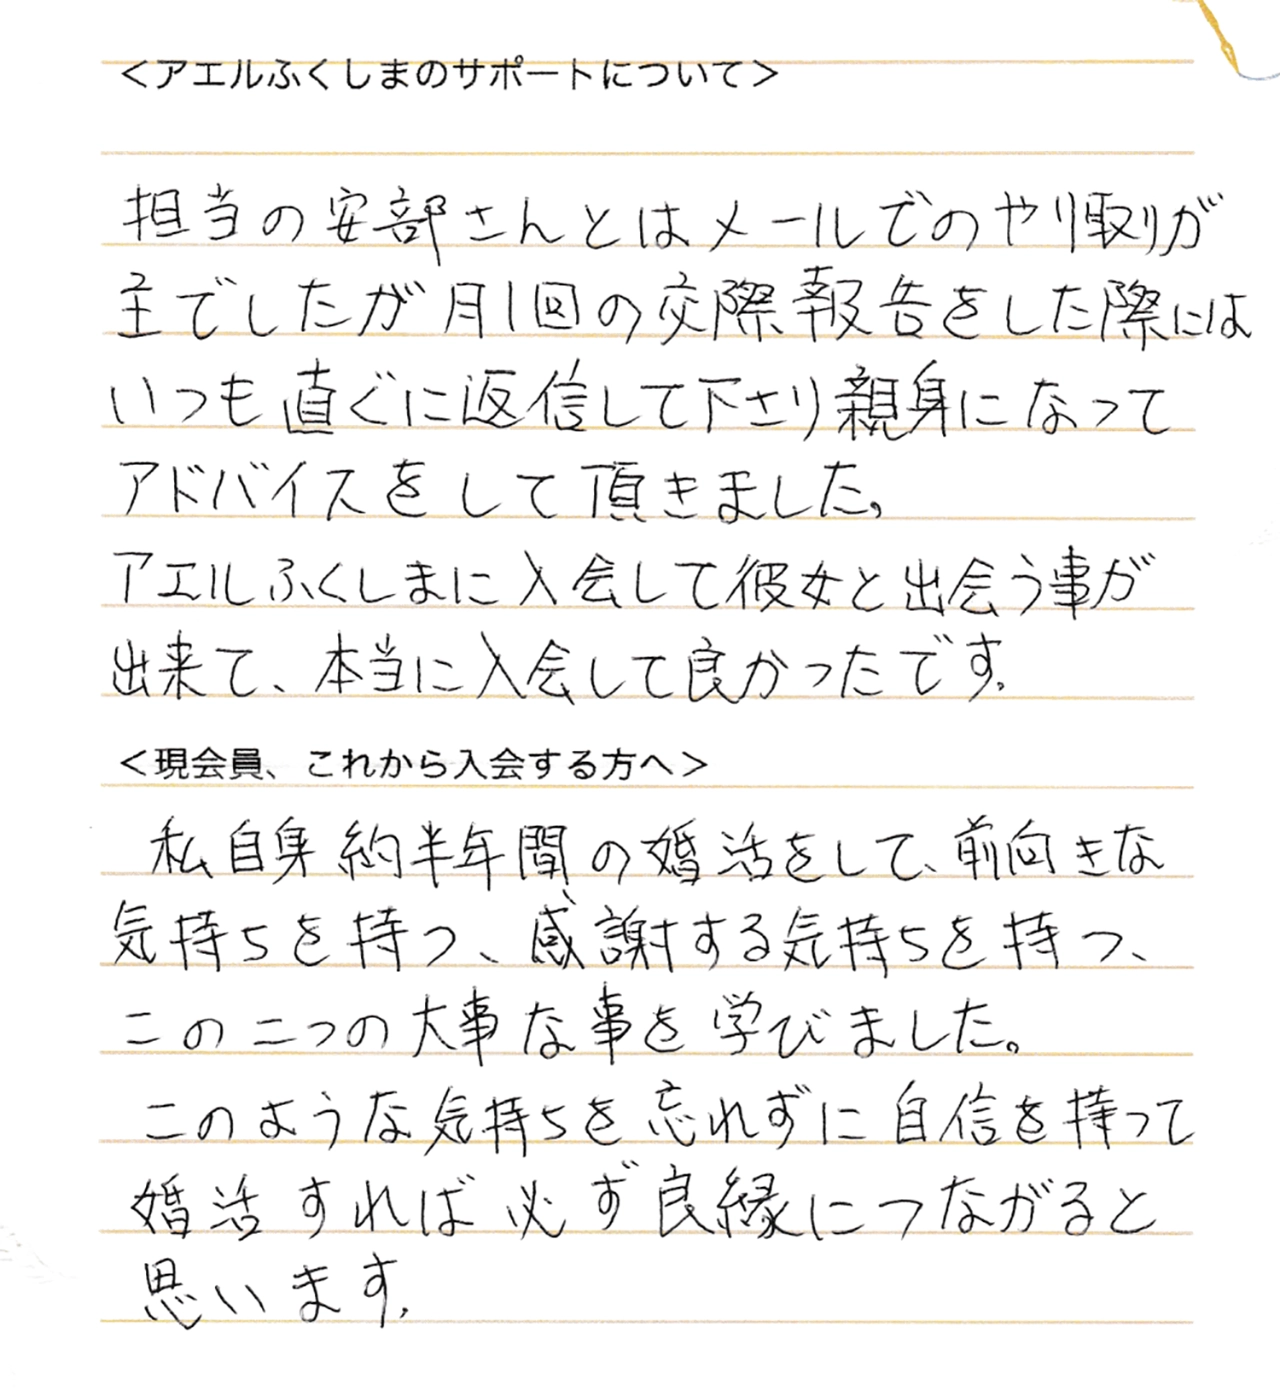 ＜アエルふくしまのサポートについて＞
担当の安部さんとはメールでのやり取りが
主でしたが月1回の交際報告をした際には
いつも直ぐに返信して下さり親身になって
アドバイスをして頂きました。
アエルふくしまに入会して彼女と出会う事が
出来て、本当に入会して良かったです。
＜現会員、これから入会する方へ＞
私自身約半年間の婚活をして、前向きな
気持ちを持つ、感謝する気持ちを持つ、
この二つの大事な事を学びました。
このような気持ちを忘れずに自信を持って
婚活すれば必ず良縁につながると
思います。